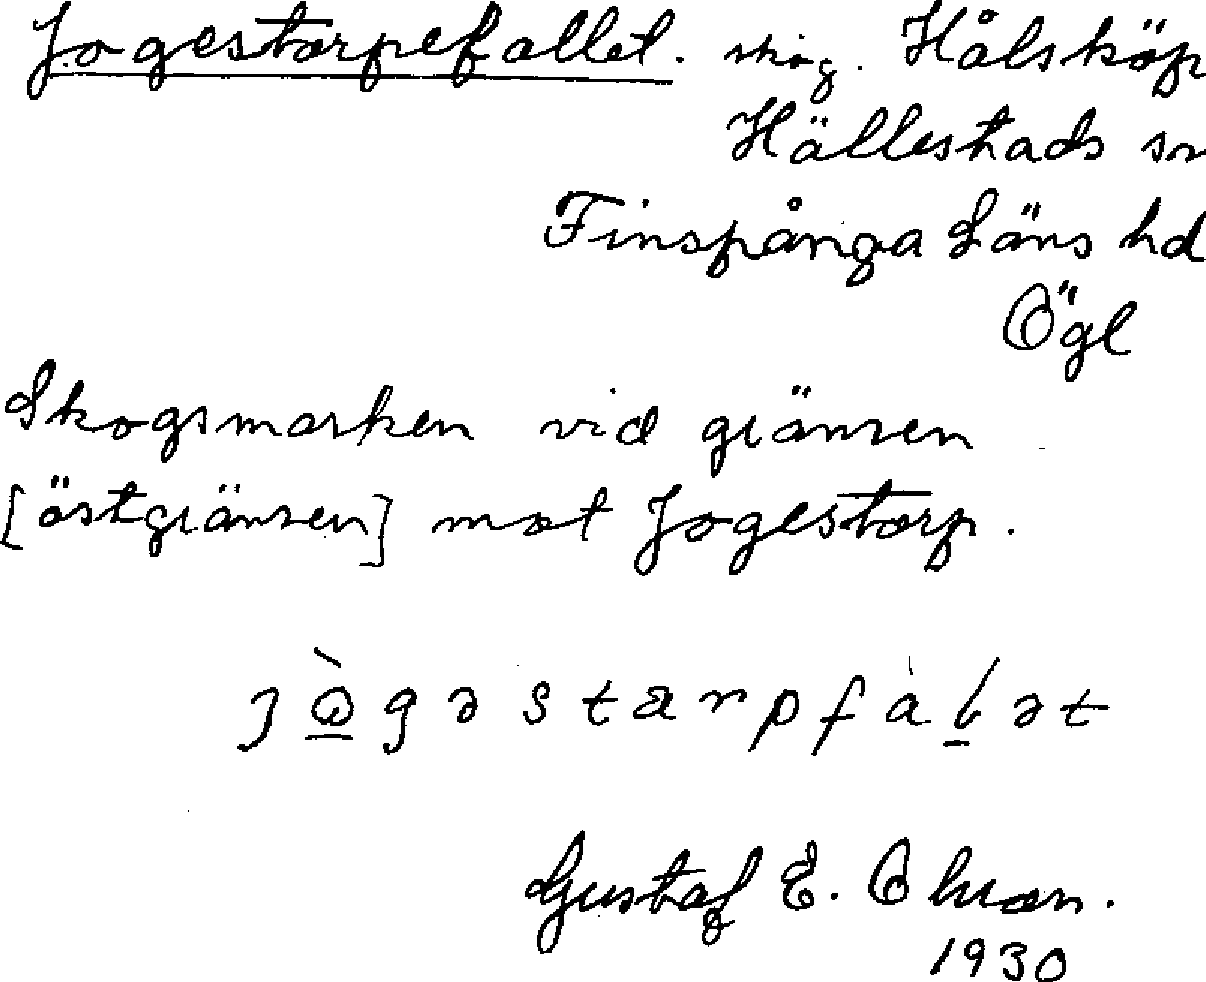 Jogestorpefallet. skog. Hålsköp
Hällestads sn
Finspånga Läns hd
Ögl
Skogsmarken vid gränsen
[östgränsen] mot Jogestorp.
Gustaf E.
1930